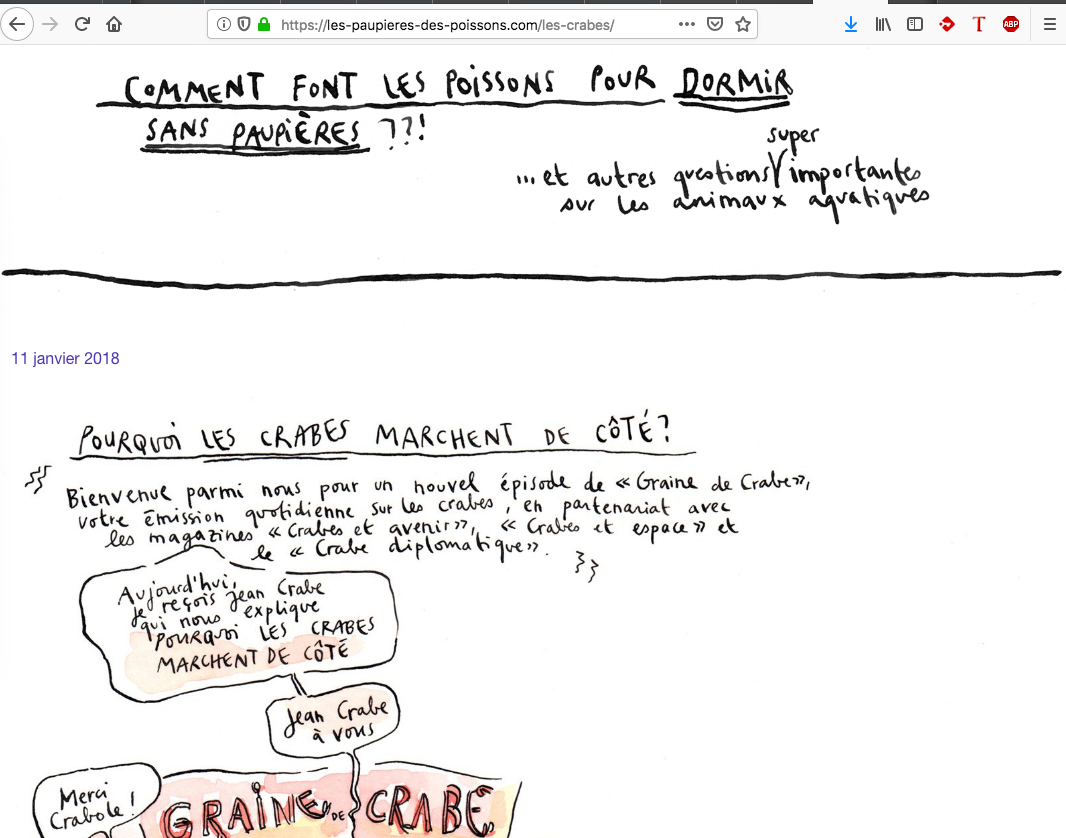 https://les-paupieres-des-poissons.com/les-crabes/
T
ABP
COMMENT FONT LES POISSONS POUR DORMIR
SANS PAUPIÈRES ??!
super
... et autres questions importantes
sur les animaux aquatiques
11 janvier 2018
POURQUOI LES CRABES MARCHENT DE CÔTÉ?
Bienvenue parmi nous pour un nouvel épisode de « Graine de Crabe »,
votre émission quotidienne sur les crabes, en partenariat avec
les magazines « Crabes et avenir », « Crabes et espace » et
le « Crabe diplomatique ».
Aujourd'hui,
je reçois Jean Crabe
qui nous explique
POURQUOI LES CRABES
MARCHENT DE CÔTÉ
Jean Crabe
à vous
Merci
Crabole!
GRAINE DE CRABE